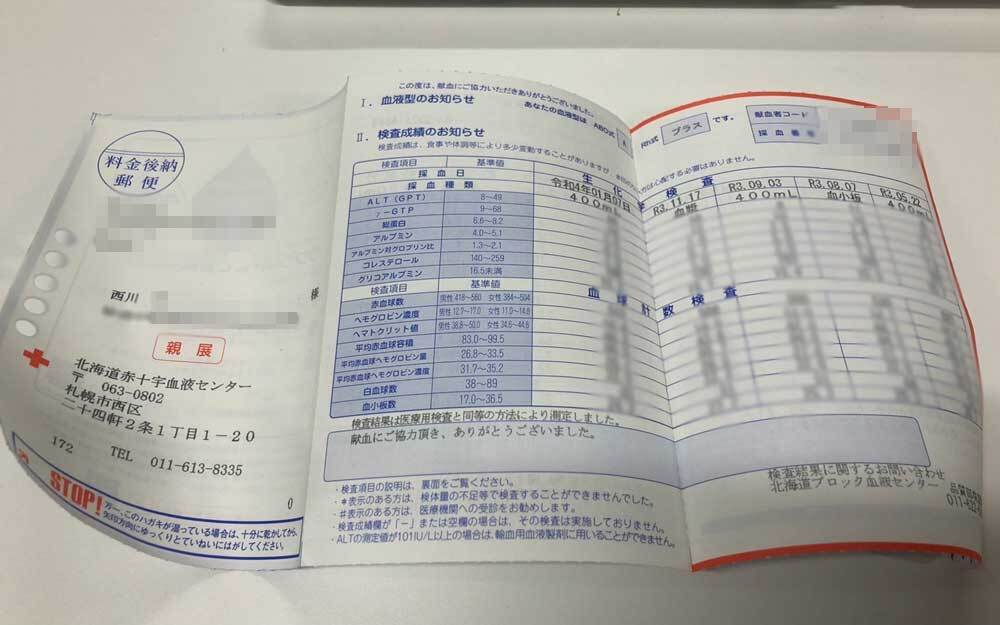 料金後納
郵便
西川
様
親展
北海道赤十字血液センター
〒 063-0802
札幌市西区
二十四軒2条1丁目1-20
TEL 011-613-8335
172
0
STOP!
万一、このハガキが湿っている場合は、十分に乾かしてから、
矢印方向にゆっくりとていねいにはがしてください。
この度は、献血にご協力いただきありがとうございました。
Ⅰ. 血液型のお知らせ
あなたの血液型は ABO式 A
Rh式 プラス です。
献血者コード
採血番号
Ⅱ. 検査成績のお知らせ
検査成績は、食事や体調等により多少変動することがありますが、
は心配する必要はありません。
検査項目 基準値 生化学検査
採血日 令和4年01月07日 R3.11.17 R3.09.03 R3.08.07 R3.05.22
採血種類 400mL 血漿 400mL 血小板 400mL
ALT(GPT) 8~49
γ-GTP 9~68
総蛋白 6.6~8.2
アルブミン 4.0~5.1
アルブミン対グロブリン比 1.3~2.1
コレステロール 140~259
グリコアルブミン 16.5未満
検査項目 基準値 血球計数検査
赤血球数 男性 418~560 女性 384~504
ヘモグロビン濃度 男性 12.7~17.0 女性 11.0~14.8
ヘマトクリット値 男性 38.8~50.0 女性 34.6~44.6
平均赤血球容積 83.0~99.5
平均赤血球ヘモグロビン量 26.8~33.5
平均赤血球ヘモグロビン濃度 31.7~35.2
白血球数 38~89
血小板数 17.0~36.5
検査結果は医療用検査と同等の方法により測定しました。
献血にご協力頂き、ありがとうございました。
・検査項目の説明は、裏面をご覧ください。
・*表示のある方は、検体量の不足等で検査することができませんでした。
・#表示のある方は、医療機関への受診をお勧めします。
・検査成績欄が「-」または空欄の場合は、その検査は実施しておりません。
・ALTの測定値が101IU/L以上の場合は、輸血用血液製剤に用いることができません。
検査結果に関するお問い合わせ
北海道ブロック血液センター